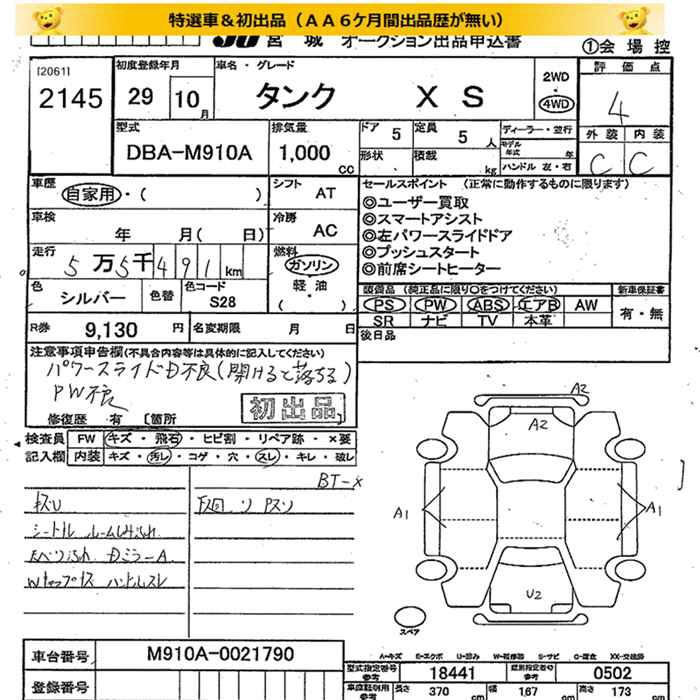 特選車＆初出品（ＡＡ６ケ月間出品歴が無い）
JU 宮城 オークション出品申込書
①会場控
[2061]
2145
初度登録年月
29 10月
車名・グレード
タンク X S
2WD
4WD
評価点
4
外装 内装
C C
型式
DBA-M910A
排気量
1,000 cc
ドア 5
定員 5 人
形状
積載 kg
ディーラー・並行
モデル年式 年
ハンドル 左・右
車歴
自家用・( )
シフト AT
車検
年 月( 日)
冷房 AC
走行
5万5千491km
燃料
ガソリン
軽・油
( )
色
シルバー
色替
色コード
S28
R券 9,130 円
名変期限 月 日
セールスポイント (正常に動作するものに限ります)
◎ユーザー買取
◎スマートアシスト
◎左パワースライドドア
◎プッシュスタート
◎前席シートヒーター
装備品 (純正品に限り○をつけてください)
新車保証書
PS PW ABS エアB AW
SR ナビ TV 本革
有・無
後日品
注意事項申告欄(不具合内容等は具体的に記入してください)
パワースライドD不良(開けると落ちる)
PW不良
初出品
修復歴 有 〔箇所
検査員記入欄
FW キズ・飛石・ヒビ割・リペア跡・×要
内装 キズ・汚レ・コゲ・穴・スレ・キレ・破レ
BT-×
A2
A2
A1
A1
U2
スペア
A-キズ E-エクボ U-凹み W-補修跡 S-サビ C-腐食 XX-交換跡
車台番号 M910A-0021790
登録番号
型式指定番号 参考 18441
類別指定番号 参考 0502
長さ 370 cm
幅 167 cm
高さ 173 cm